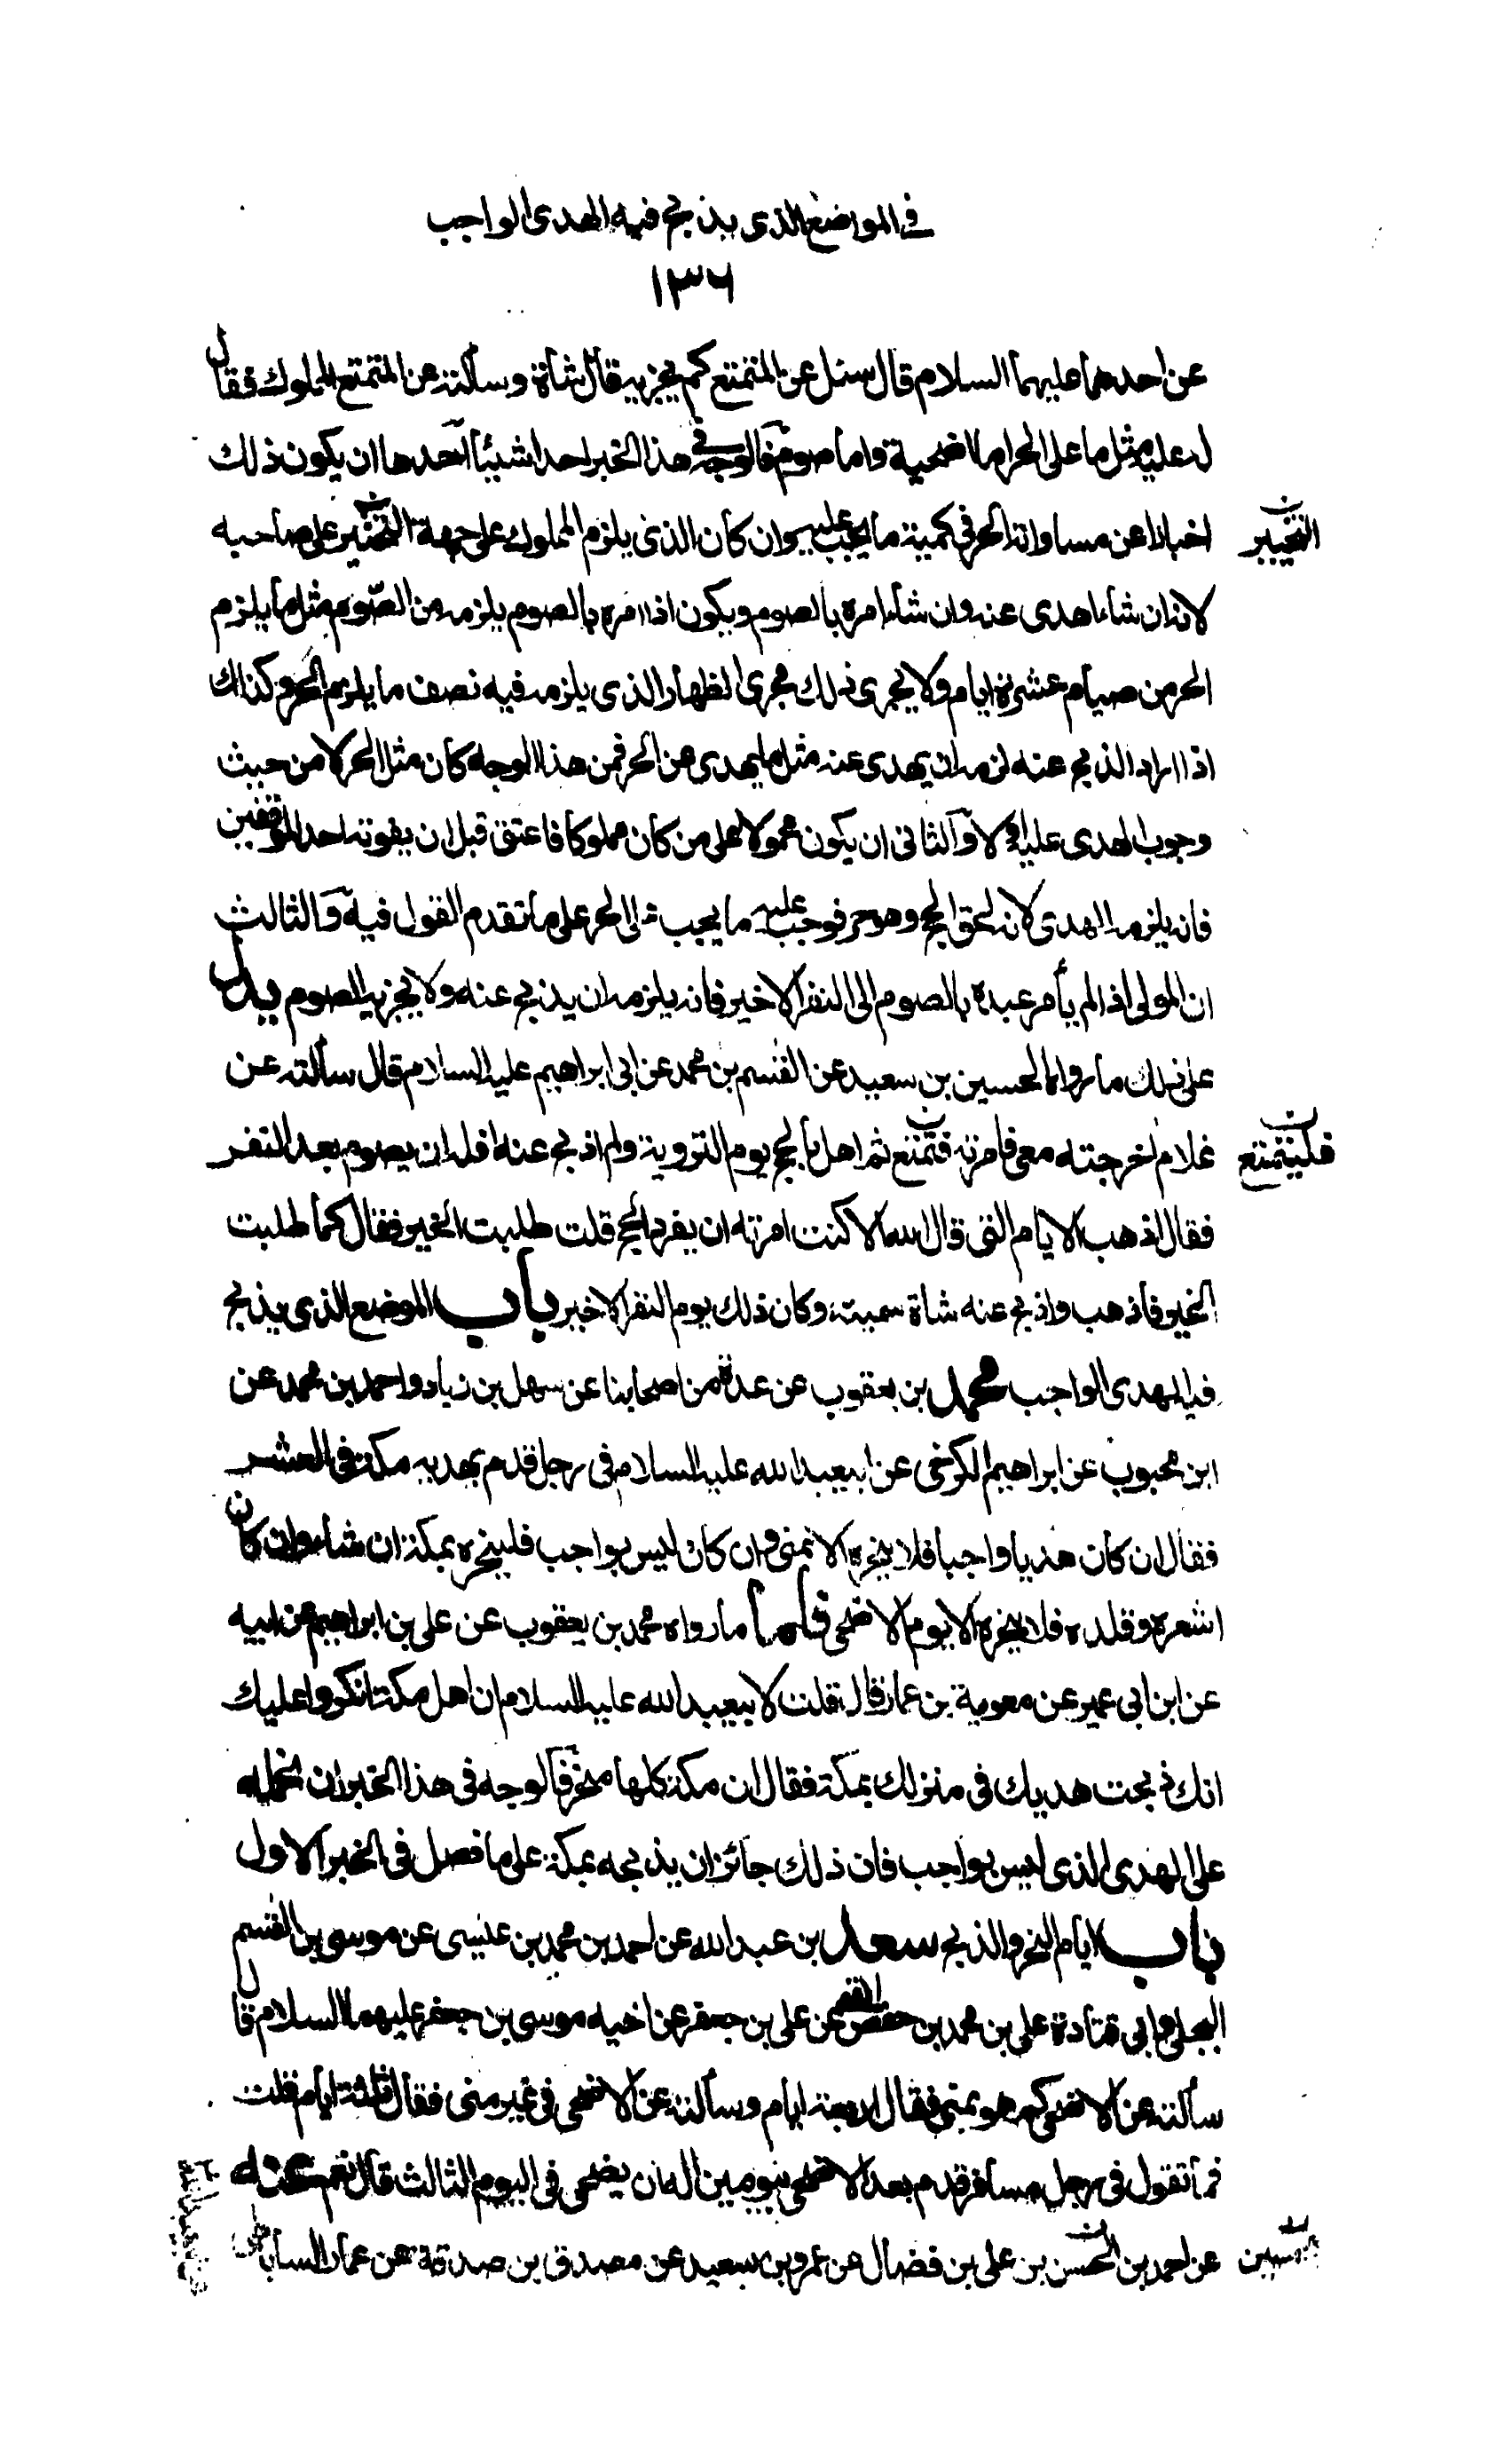 في الموضع الذي يذبح فيه الهدى الواجب
١٣٦
عن احدهما عليهما السلام قال سئل عن المتمتع كم يجزيه قال شاة وسألته عن المتمتع المملوك فقال
له عليه مثل ما على الحر اما اضحية واما صوم فالوجه في هذا الخبر احد اشياء احدها ان يكون ذلك
اخبارا عن مساواته الحر في كمية ما يجب عليه وان كان الذي يلزم المملوك على جهة التخيير على صاحبه
التخيير
لانه ان شاء اهدى عنه وان شاء امره بالصوم ويكون اذا امره بالصوم يلزمه من الصّوم مثل ما يلزم
الحر من صيام عشرة ايام ولا يجرى ذلك مجرى الظهار الذي يلزمه فيه نصف ما يلزم الحر وكذلك
اذا اراد الذبح عنه لزمه ان يهدى عنه مثل ما يهدى عن الحر فمن هذا الوجه كان مثل الحر لا من حيث
وجوب الهدى عليه اولا والثانى ان يكون محمولا على من كان مملوكا فاعتق قبل ان يفوته احد الموقفين
فانه يلزمه الهدى لانه لحق الحج وهو حر فوجب عليه ما يجب على الحر على ما تقدم القول فيه والثالث
ان المولى اذا لم يأمر عبده بالصوم الى النفر الاخير فانه يلزمه ان يذبح عنه ولا يجزيه الصوم يدل
على ذلك ما رواه الحسين بن سعيد عن القسم بن محمد عن ابى ابراهيم عليه السلام قال سألته عن
غلام اخرجته معى فامرته فتمتع ثم اهل بالحج يوم التروية ولم اذبح عنه افله ان يصوم بعد النفر
فليتمتع
فقال ذهب الايام التى قال الله الا كنت امرته ان يفرد الحج قلت طلبت الخير فقال كما طلبت
الخير فاذهب واذبح عنه شاة سمينة وكان ذلك يوم النفر الاخير باب الموضع الذي يذبح
فيه الهدى الواجب محمد بن يعقوب عن عدة من اصحابنا عن سهل بن زياد واحمد بن محمد عن
ابن محبوب عن ابراهيم الكرخى عن ابيعبدالله عليه السلام فى رجل قدم بهديه مكة فى العشر
فقال ان كان هديا واجبا فلا ينحره الا بمنى وان كان ليس بواجب فلينحره بمكة ان شاء وان كان
اشعره وقلده فلا ينحره الا يوم الاضحى فاما ما رواه محمد بن يعقوب عن على بن ابراهيم عن ابيه
عن ابن ابى عمير عن معوية بن عمار قال قلت لابيعبدالله عليه السلام ان اهل مكة انكروا عليك
انك ذبحت هديك فى منزلك بمكة فقال ان مكة كلها منحر فالوجه فى هذا الخبر ان نحمله
على الهدى الذى ليس بواجب فان ذلك جائز ان يذبحه بمكة على ما فصل فى الخبر الاول
باب ايام النحر والذبح سعد بن عبدالله عن احمد بن محمد بن عيسى عن موسى بن القسم
البجلى وابى قتادة على بن محمد بن حفص القمى عن على بن جعفر عن اخيه موسى بن جعفر عليهما السلام قال
سألته عن الاضحى كم هو بمنى فقال اربعة ايام وسألته عن الاضحى فى غير منى فقال ثلثة ايام فقلت
فما تقول فى رجل مسافر قدم بعد الاضحى بيومين اله ان يضحى فى اليوم الثالث قال نعم عنه
عن احمد بن الحسن بن على بن فضال عن عمرو بن سعيد عن مصدق بن صدقة عن عمار الساباطى
الحسين